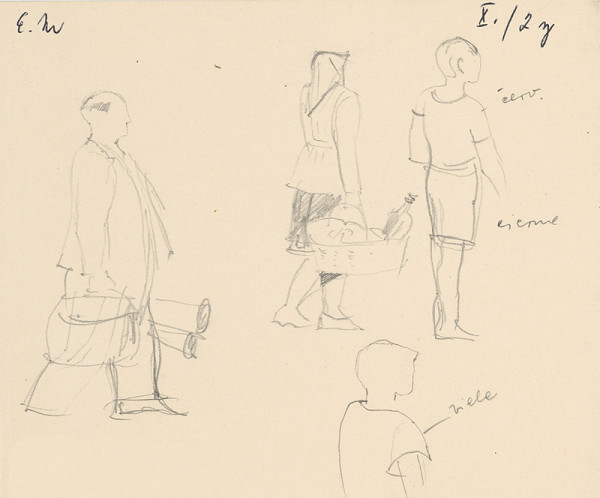 E. M
X./2 y
červ.
čierne
biele